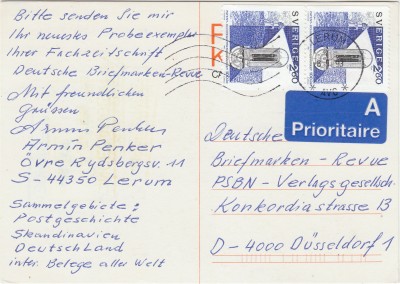 Bitte senden Sie mir
Ihr neuestes Probeexemplar
Ihrer Fachzeitschrift
Deutsche Briefmarken-Revue
Mit freundlichen
Grüssen
Armin Penker
Armin Penker
Övre Rydsbergsv. 11
S-44350 Lerum
Sammelgebiete:
Postgeschichte
Skandinavien
Deutschland
inter. Belege aller Welt
F
K
SVERIGE 2.80
SVERIGE 2.80
LERUM
AVG
A
Prioritaire
Deutsche
Briefmarken - Revue
PSBN - Verlagsgesellsch.
Konkordiastrasse 13
D-4000 Düsseldorf 1